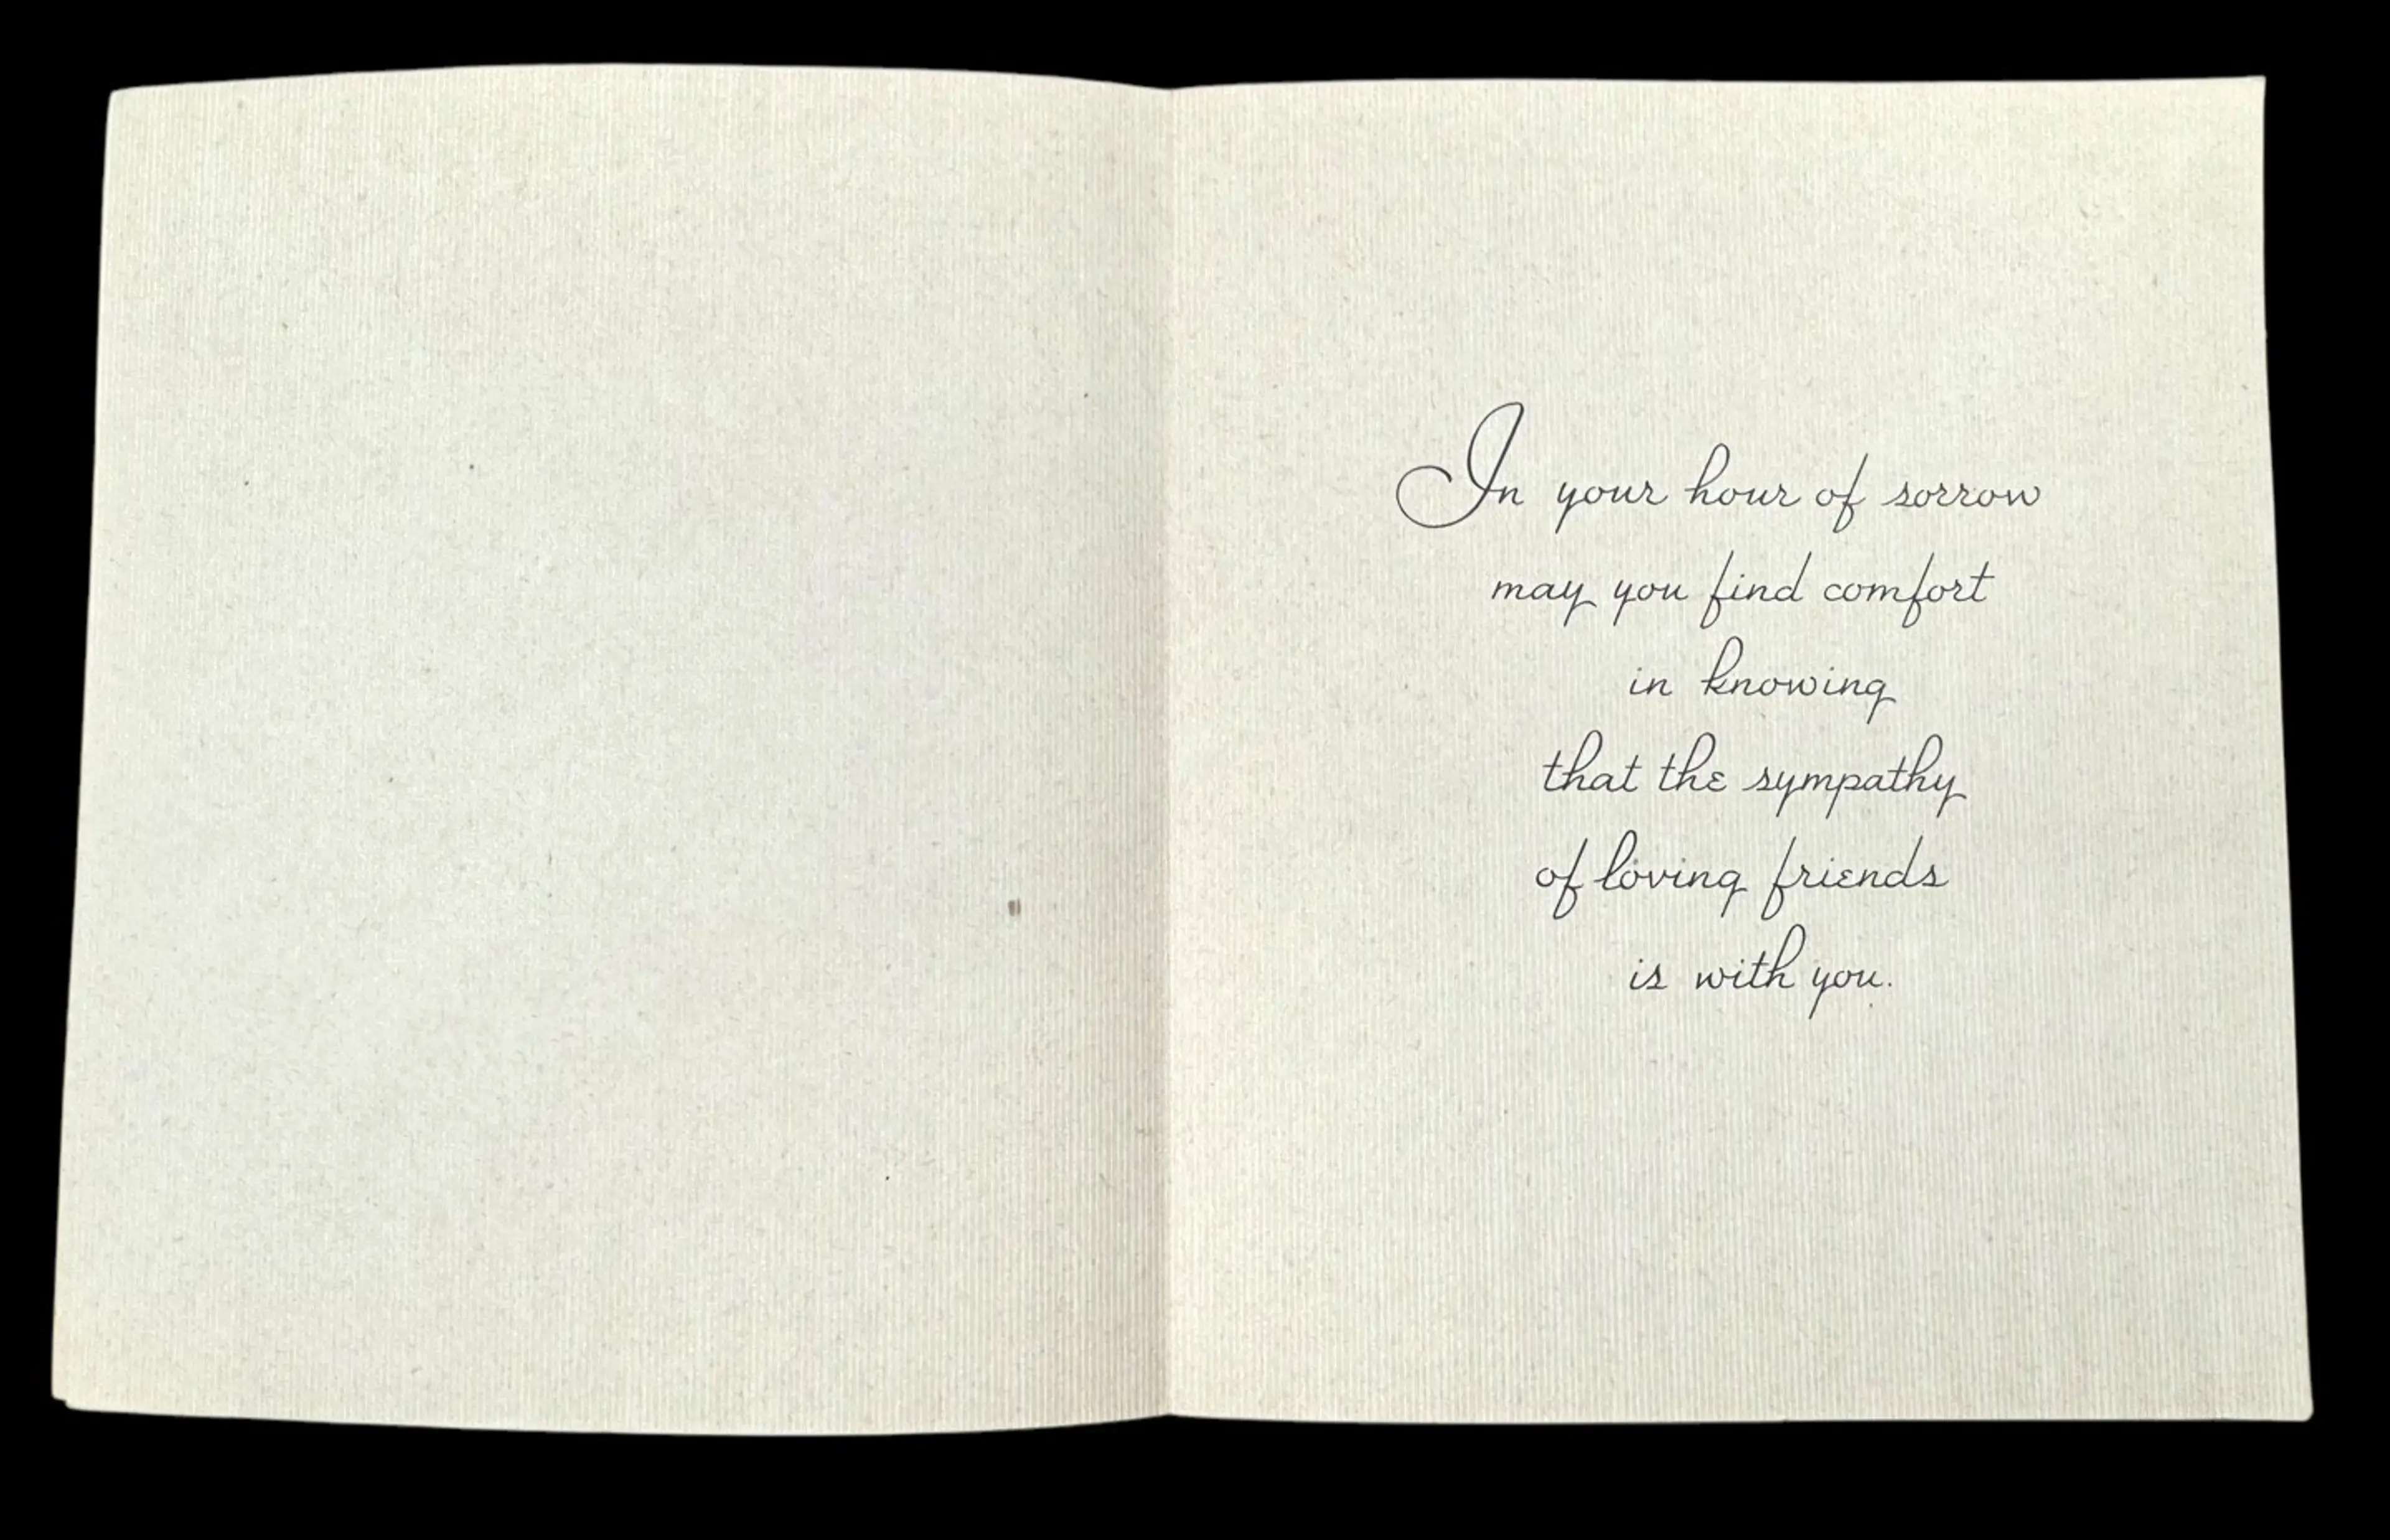 In your hour of sorrow
may you find comfort
in knowing
that the sympathy
of loving friends
is with you.